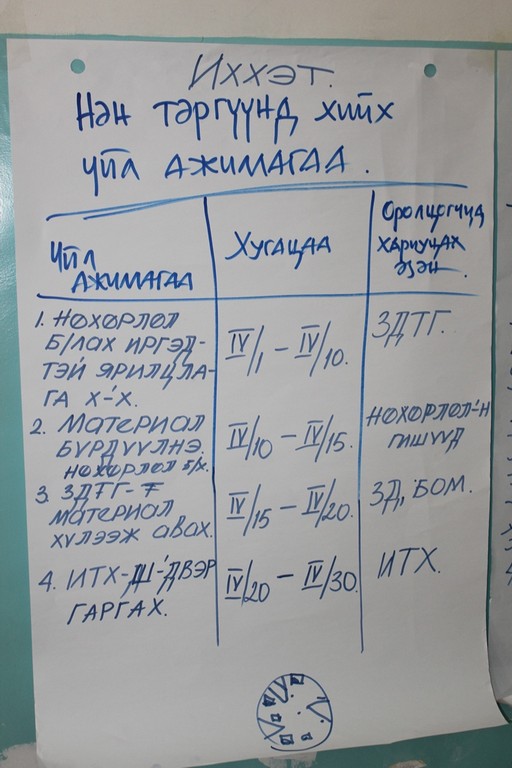 ИХХЭТ.
Нэн тэргүүнд хийх
үйл ажилмагаа.
Үйл ажимагаа
Хугацаа
Оролцогчид
хариуцах
эзэн.
1. Нөхөрлөл
б/лах иргэд-
тэй ярилцла-
га х-х.
IV/1 – IV/10.
ЗДТГ.
2. Материал
бүрдүүлнэ.
нөхөрлөл б/х.
IV/10 – IV/15.
Нөхөрлөл-н
гишүүд
3. ЗДТГ-т
материал
хүлээж авах.
IV/15 – IV/20.
ЗД, БОМ.
4. ИТХ-ш-двэр
гаргах.
IV/20 – IV/30.
ИТХ.